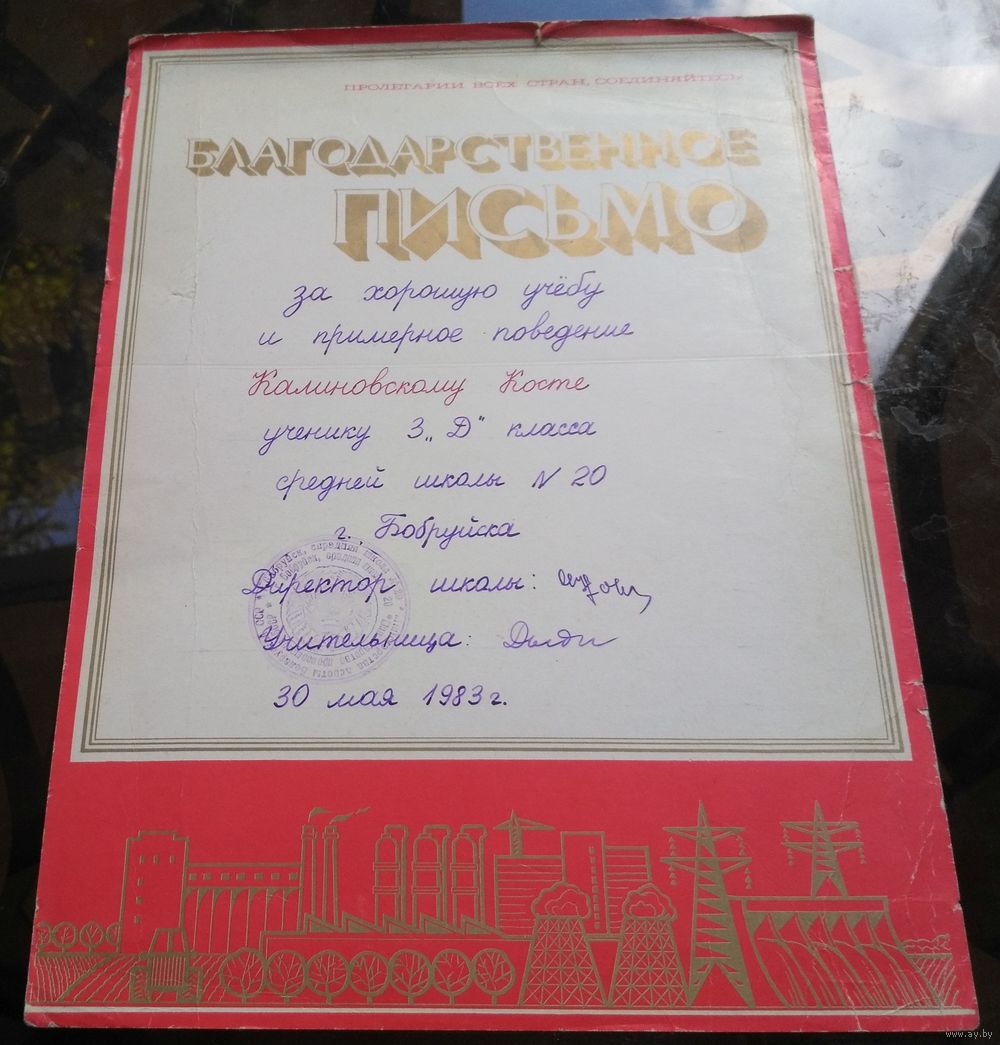 ПРОЛЕТАРИИ ВСЕХ СТРАН, СОЕДИНЯЙТЕСЬ!
БЛАГОДАРСТВЕННОЕ
ПИСЬМО
за хорошую учёбу
и примерное поведение
Калиновскому Косте
ученику 3 „Д" класса
средней школы N 20
г. Бобруйска
Директор школы:
Учительница:
30 мая 1983 г.
www.ay.by